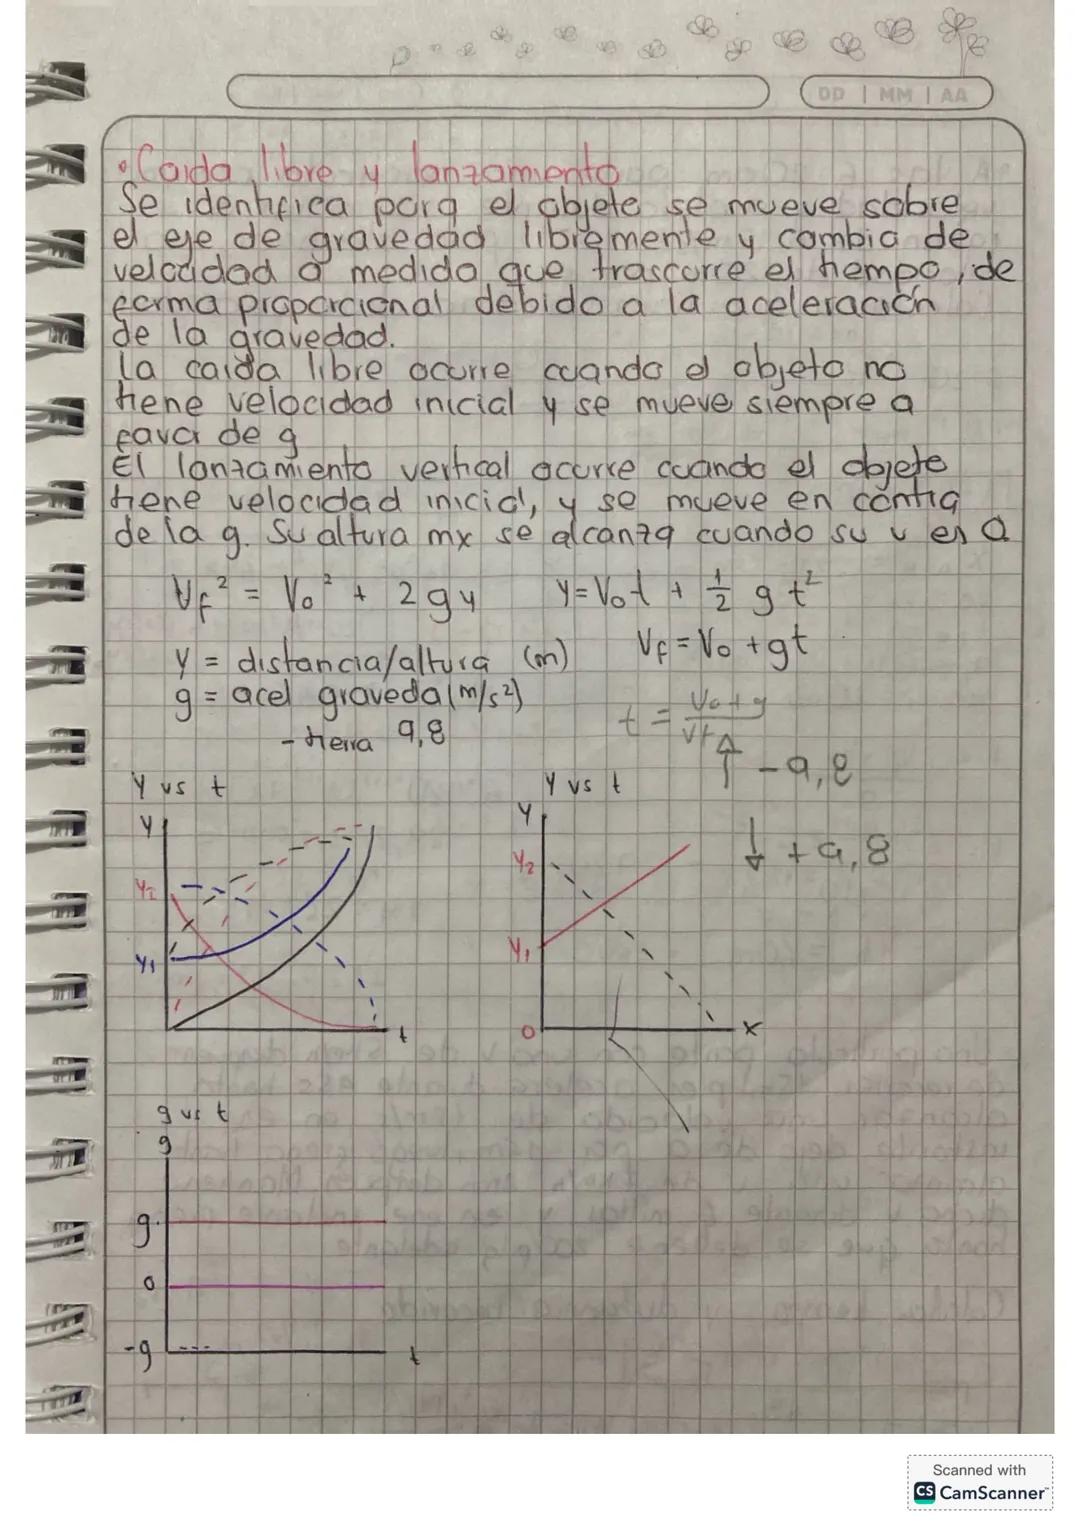 DD | MM | AA
• Caida libre y lanzamiento
Se identifica porq el objete se mueve sobre
el eje de gravedad libremente y cambia de
velocidad a medida que trascurre el tiempo, de
forma proporcional debido a la aceleración
de la gravedad.
La caida libre ocurre cuando el objeto no
tiene velocidad inicial y se mueve siempre a
favor de g
El lanzamiento vertical ocurre cuando el objeto
tiene velocidad inicial, y se mueve en contra
de la g. Su altura mx se alcanza cuando su v es 0
Vf² = Vo² + 2gy y=Vot + 1/2 g t²
y = distancia/altura (m) Vf = Vo + gt
g = acel graveda (m/s²)
- tierra 9,8
t = Vo+g/Vf
↑ -9,8
Y vs t Y vs t
Y Y
↓ +9,8
Y2 Y2
Y1 Y1
t 0 x
g vs t
g
g
0
-g t
Scanned with
CS CamScanner